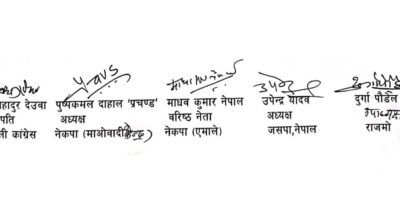 हादुर देउवा पुष्पकमल दाहाल 'प्रचण्ड' माधव कुमार नेपाल उपेन्द्र यादव दुर्गा पौडेल
पति अध्यक्ष वरिष्ठ नेता अध्यक्ष उपाध्यक्ष
ली कांग्रेस नेकपा (माओवादी केन्द्र) नेकपा (एमाले) जसपा, नेपाल राजमो